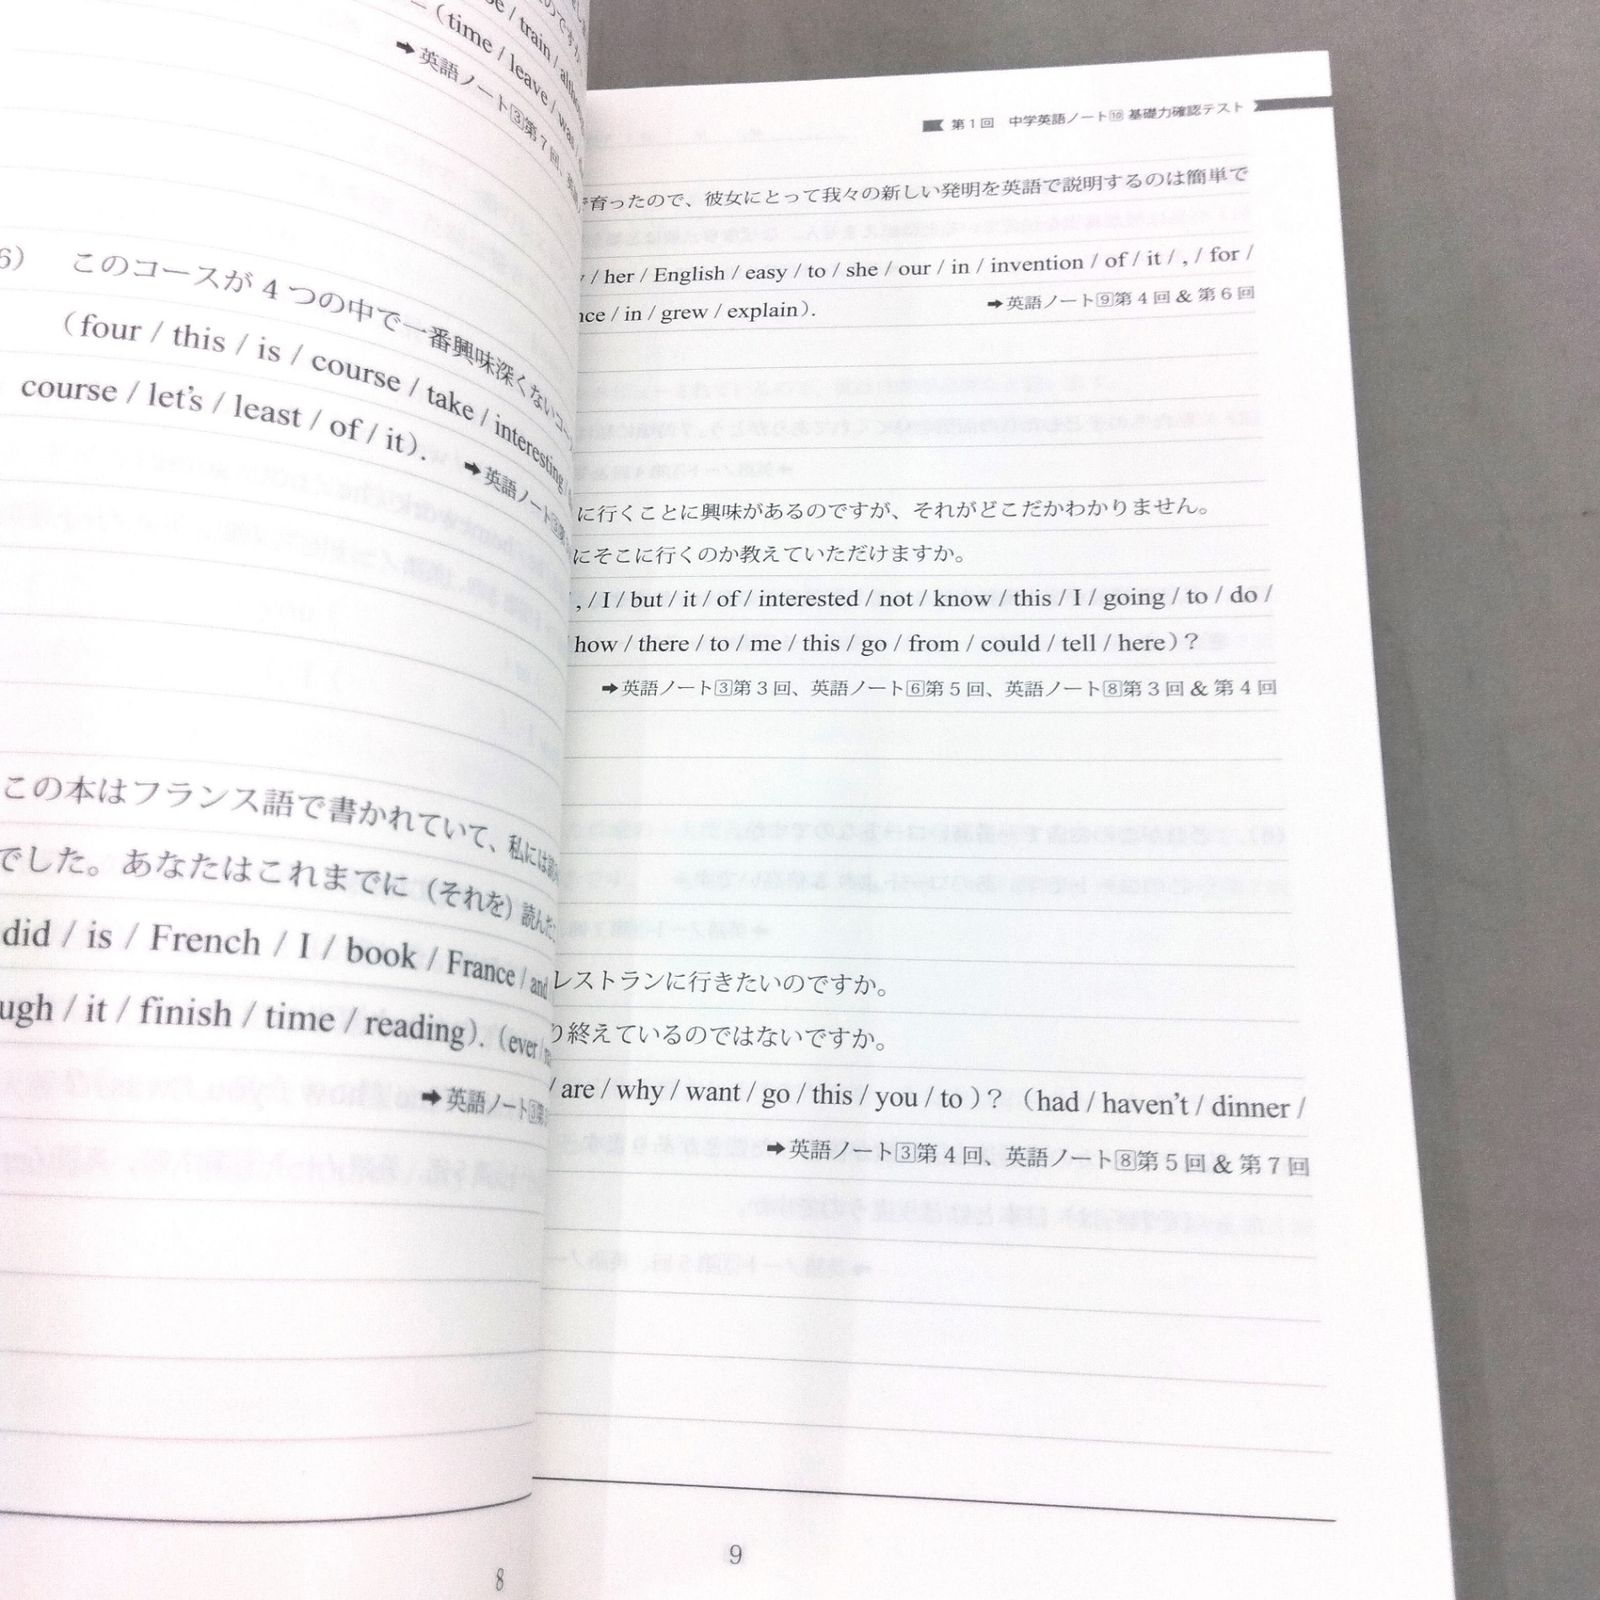 / train /
（time / leave / was /
➡英語ノート③第７回、
6） このコースが４つの中で一番興味深くないコー
（four / this / is / course / take / interesting /
course / let's / least / of / it）.
➡英語ノート
この本はフランス語で書かれていて、私には
でした。あなたはこれまでに（それを）読んだ
did / is / French / I / book / France / and
ugh / it / finish / time / reading）.（ever /
➡英語ノート③第
8
第１回 中学英語ノート⑩ 基礎力確認テスト
育ったので、彼女にとって我々の新しい発明を英語で説明するのは簡単で
/ her / English / easy / to / she / our / in / invention / of / it / , / for /
nce / in / grew / explain）.
➡英語ノート⑨第４回 & 第６回
に行くことに興味があるのですが、それがどこだかわかりません。
にそこに行くのか教えていただけますか。
, / I / but / it / of / interested / not / know / this / I / going / to / do /
how / there / to / me / this / go / from / could / tell / here）?
➡英語ノート③第３回、英語ノート⑥第５回、英語ノート⑧第３回 & 第４回
レストランに行きたいのですか。
り終えているのではないですか。
/ are / why / want / go / this / you / to ）?（had / haven't / dinner /
➡英語ノート③第４回、英語ノート⑧第５回 & 第７回
9